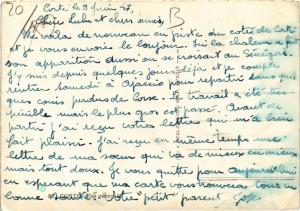 20
Corte le 9 juin 52
B
Chère Lulu et chers amis,
Me voilà de nouveau en piste du côté de Corte
et je vous envoie le bonjour. Ici la chaleur a fait
son apparition aussi on se croirait au Sénégal.
J'y suis depuis quelques jours et je compte
rentrer samedi à Ajaccio pour repartir sans que
vous perdus de Corse. Le travail a été très
pénible mais le plus gros est passé. Avant de
partir j'ai reçu votre lettre qui m'a bien
fait plaisir. J'ai reçu en même temps une
lettre de ma sœur qui va de mieux en mieux
mais tout doux. Je vous quitte pour aujourd'hui
en espérant que ma carte vous trouvera tous en
bonne santé. Votre petit parent